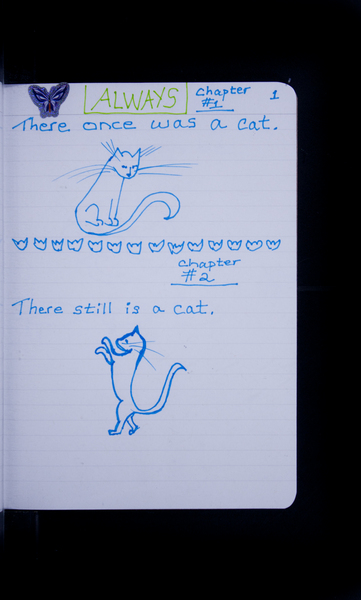 ALWAYS
Chapter
#1
1
There once was a cat.
Chapter
#2
There still is a cat.